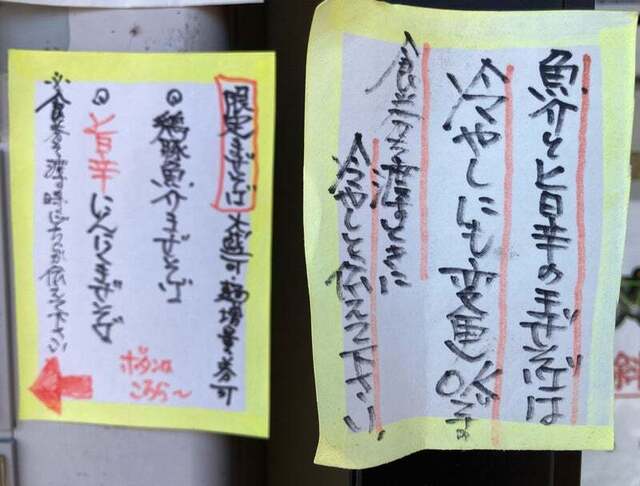 限定まぜそば 大盛可・麺増量券可
◎ 鶏豚魚介まぜそば
◎ 旨辛にんにくまぜそば
※食券を渡す時にどちらか伝えて下さい
ボタンは
こちら〜
魚介と旨辛のまぜそばは
冷やしにも変更OKです。
食券を渡すときに
冷やしと伝えて下さい。
斜